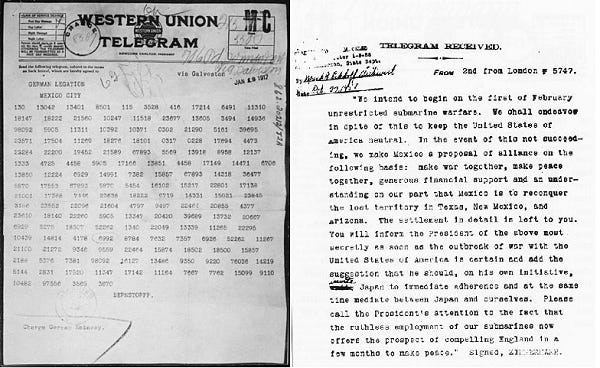 WESTERN UNION
TELEGRAM
via Galveston
JAN 19 1917
GERMAN LEGATION
MEXICO CITY
130 13042 13401 8501 115 3528 416 17214 6491 11310
18147 18222 21560 10247 11518 23677 13605 3494 14936
98092 5905 11311 10392 10371 0302 21290 5161 39695
23571 17504 11269 18276 18101 0317 0228 17894 4473
22284 22200 19452 21589 67893 5569 13918 8958 12137
1333 4725 4458 5905 17166 13851 4458 17149 14471 6706
13850 12224 6929 14991 7382 15857 67893 14218 36477
5870 17553 67893 5870 5454 16102 15217 22801 17138
21001 17388 7446 23638 18222 6719 14331 15021 23845
3156 23552 22096 21604 4797 9497 22464 20855 4377
23610 18140 22260 5905 13347 20420 39689 13732 20667
6929 5275 18507 52262 1340 22049 13339 11265 22295
10439 14814 4178 6992 8784 7632 7357 6926 52262 11267
21100 21272 9346 9559 22464 15874 18502 18500 15857
2188 5376 7381 98092 16127 13486 9350 9220 76036 14219
5144 2831 17920 11347 17142 11264 7667 7762 15099 9110
10482 97556 3569 3670
BERNSTORFF.
Charge German Embassy.
TELEGRAM RECEIVED.
FROM 2nd from London # 5747.
"We intend to begin on the first of February
unrestricted submarine warfare. We shall endeavor
in spite of this to keep the United States of
America neutral. In the event of this not succeed-
ing, we make Mexico a proposal of alliance on the
following basis: make war together, make peace
together, generous financial support and an under-
standing on our part that Mexico is to reconquer
the lost territory in Texas, New Mexico, and
Arizona. The settlement in detail is left to you.
You will inform the President of the above most
secretly as soon as the outbreak of war with the
United States of America is certain and add the
suggestion that he should, on his own initiative,
Japan to immediate adherence and at the same
time mediate between Japan and ourselves. Please
call the President's attention to the fact that
the ruthless employment of our submarines now
offers the prospect of compelling England in a
few months to make peace." Signed, ZIMMERMANN.